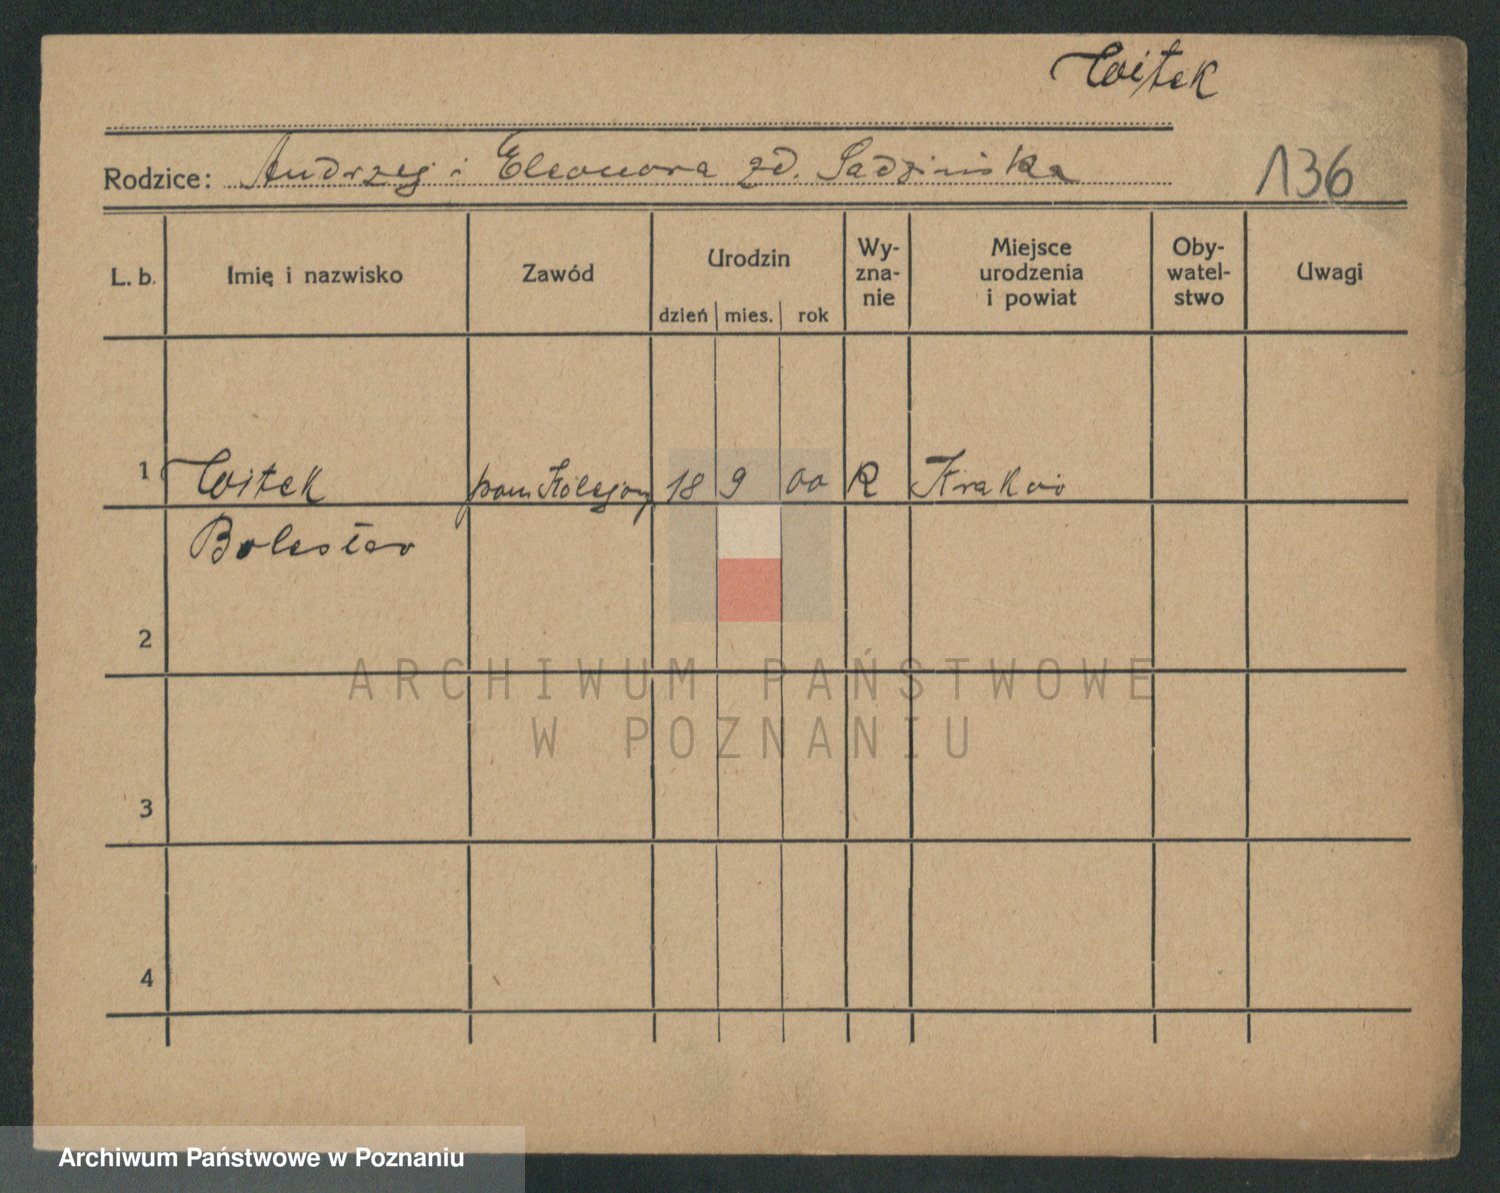 Witek
Rodzice: Andrzej i Eleonora zd. Sadzińska
136
L. b. Imię i nazwisko Zawód Urodzin dzień mies. rok Wy-zna-nie Miejsce urodzenia i powiat Oby-watel-stwo Uwagi
1 Witek pom. Kolejowy 18 9 00 R Kraków
Bolesław
2
ARCHIWUM PAŃSTWOWE
W POZNANIU
3
4
Archiwum Państwowe w Poznaniu